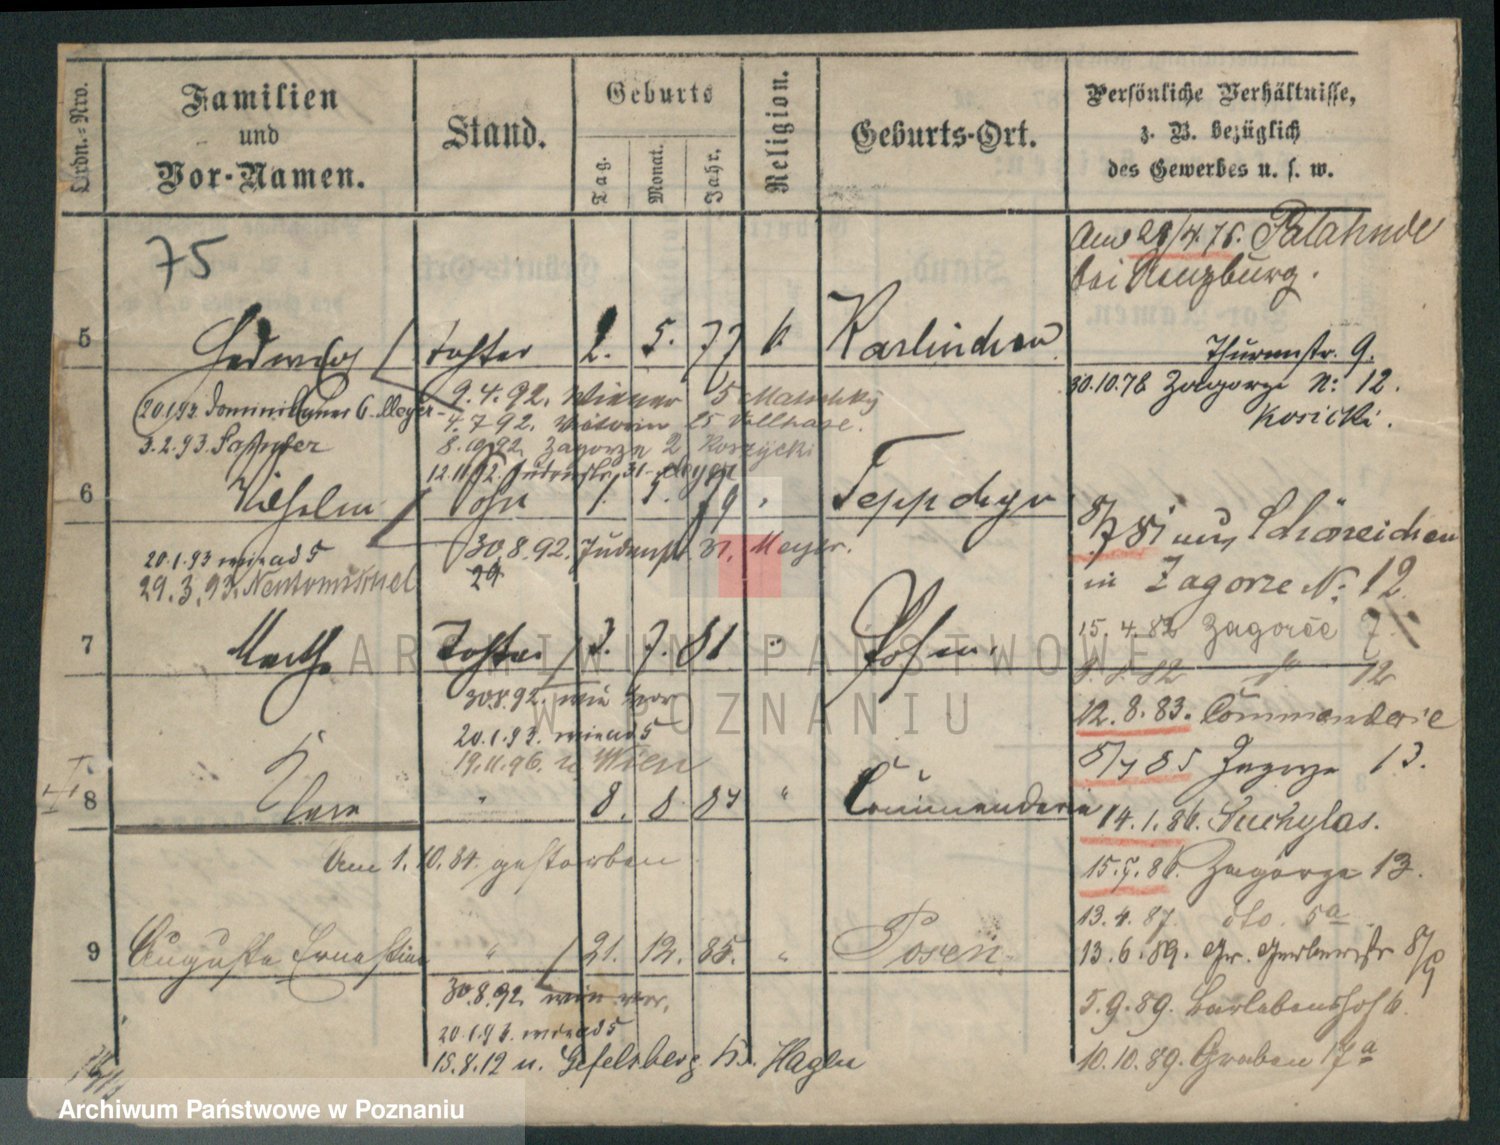 Ordn.-Nro.
Familien
und
Vor-Namen.
Stand.
Geburts
Tag.
Monat.
Jahr.
Religion.
Geburts-Ort.
Persönliche Verhältnisse,
z. B. bezüglich
des Gewerbes u. s. w.
75
bei
5 Hedwig Tochter 2. 5. 77 k Karlinchen
Thurmstr. 9.
30.10.78 Zagorze N: 12.
Kosicki.
20.1.93 Dominikaner 6. Meyer
9.4.92. Wiener 5 Matschky
4.7.92. Victoria 25 Vollhase.
3.2.93
8. Zagorze 2 Koszycki
12.11.92. Judenstr. 31 Meyer
6 Wilhelm Sohn 1. 5. 79 "
30.8.92. Judenstr. 31. Meyer.
29
20.1.93 wie ad 5
29.3.93. Neutomischel
8/7 81 aus Schöneichen
in Zagorze N: 12
15.4.82 Zagorze 7.
7 Martha Tochter 3. 7. 81 " Posen.
12
30.8.92. wie vor
20.1.93. wie ad 5
19.11.96. n. Wien
12.8.83. Commenderie
8/7 85 Zagorze 13.
8 Clara " 8. 8. 84 " Commenderie
14.1.86. Suchylas.
Am 1.10.84. gestorben
15.5.86. Zagorze 13.
13.4.87. dto. 5a
9 Auguste Ernestine " 21. 12. 85. " Posen.
13.6.89. Gr. Gerberstr 8/9
30.8.92 wie vor.
20.1.93. wie ad 5
15.8.12 n. Gefelsberg Kr. Hagen
5.9.89. Bartebenshof 6.
10.10.89. Graben 17a
ARCHIWUM PAŃSTWOWE
W POZNANIU
Archiwum Państwowe w Poznaniu